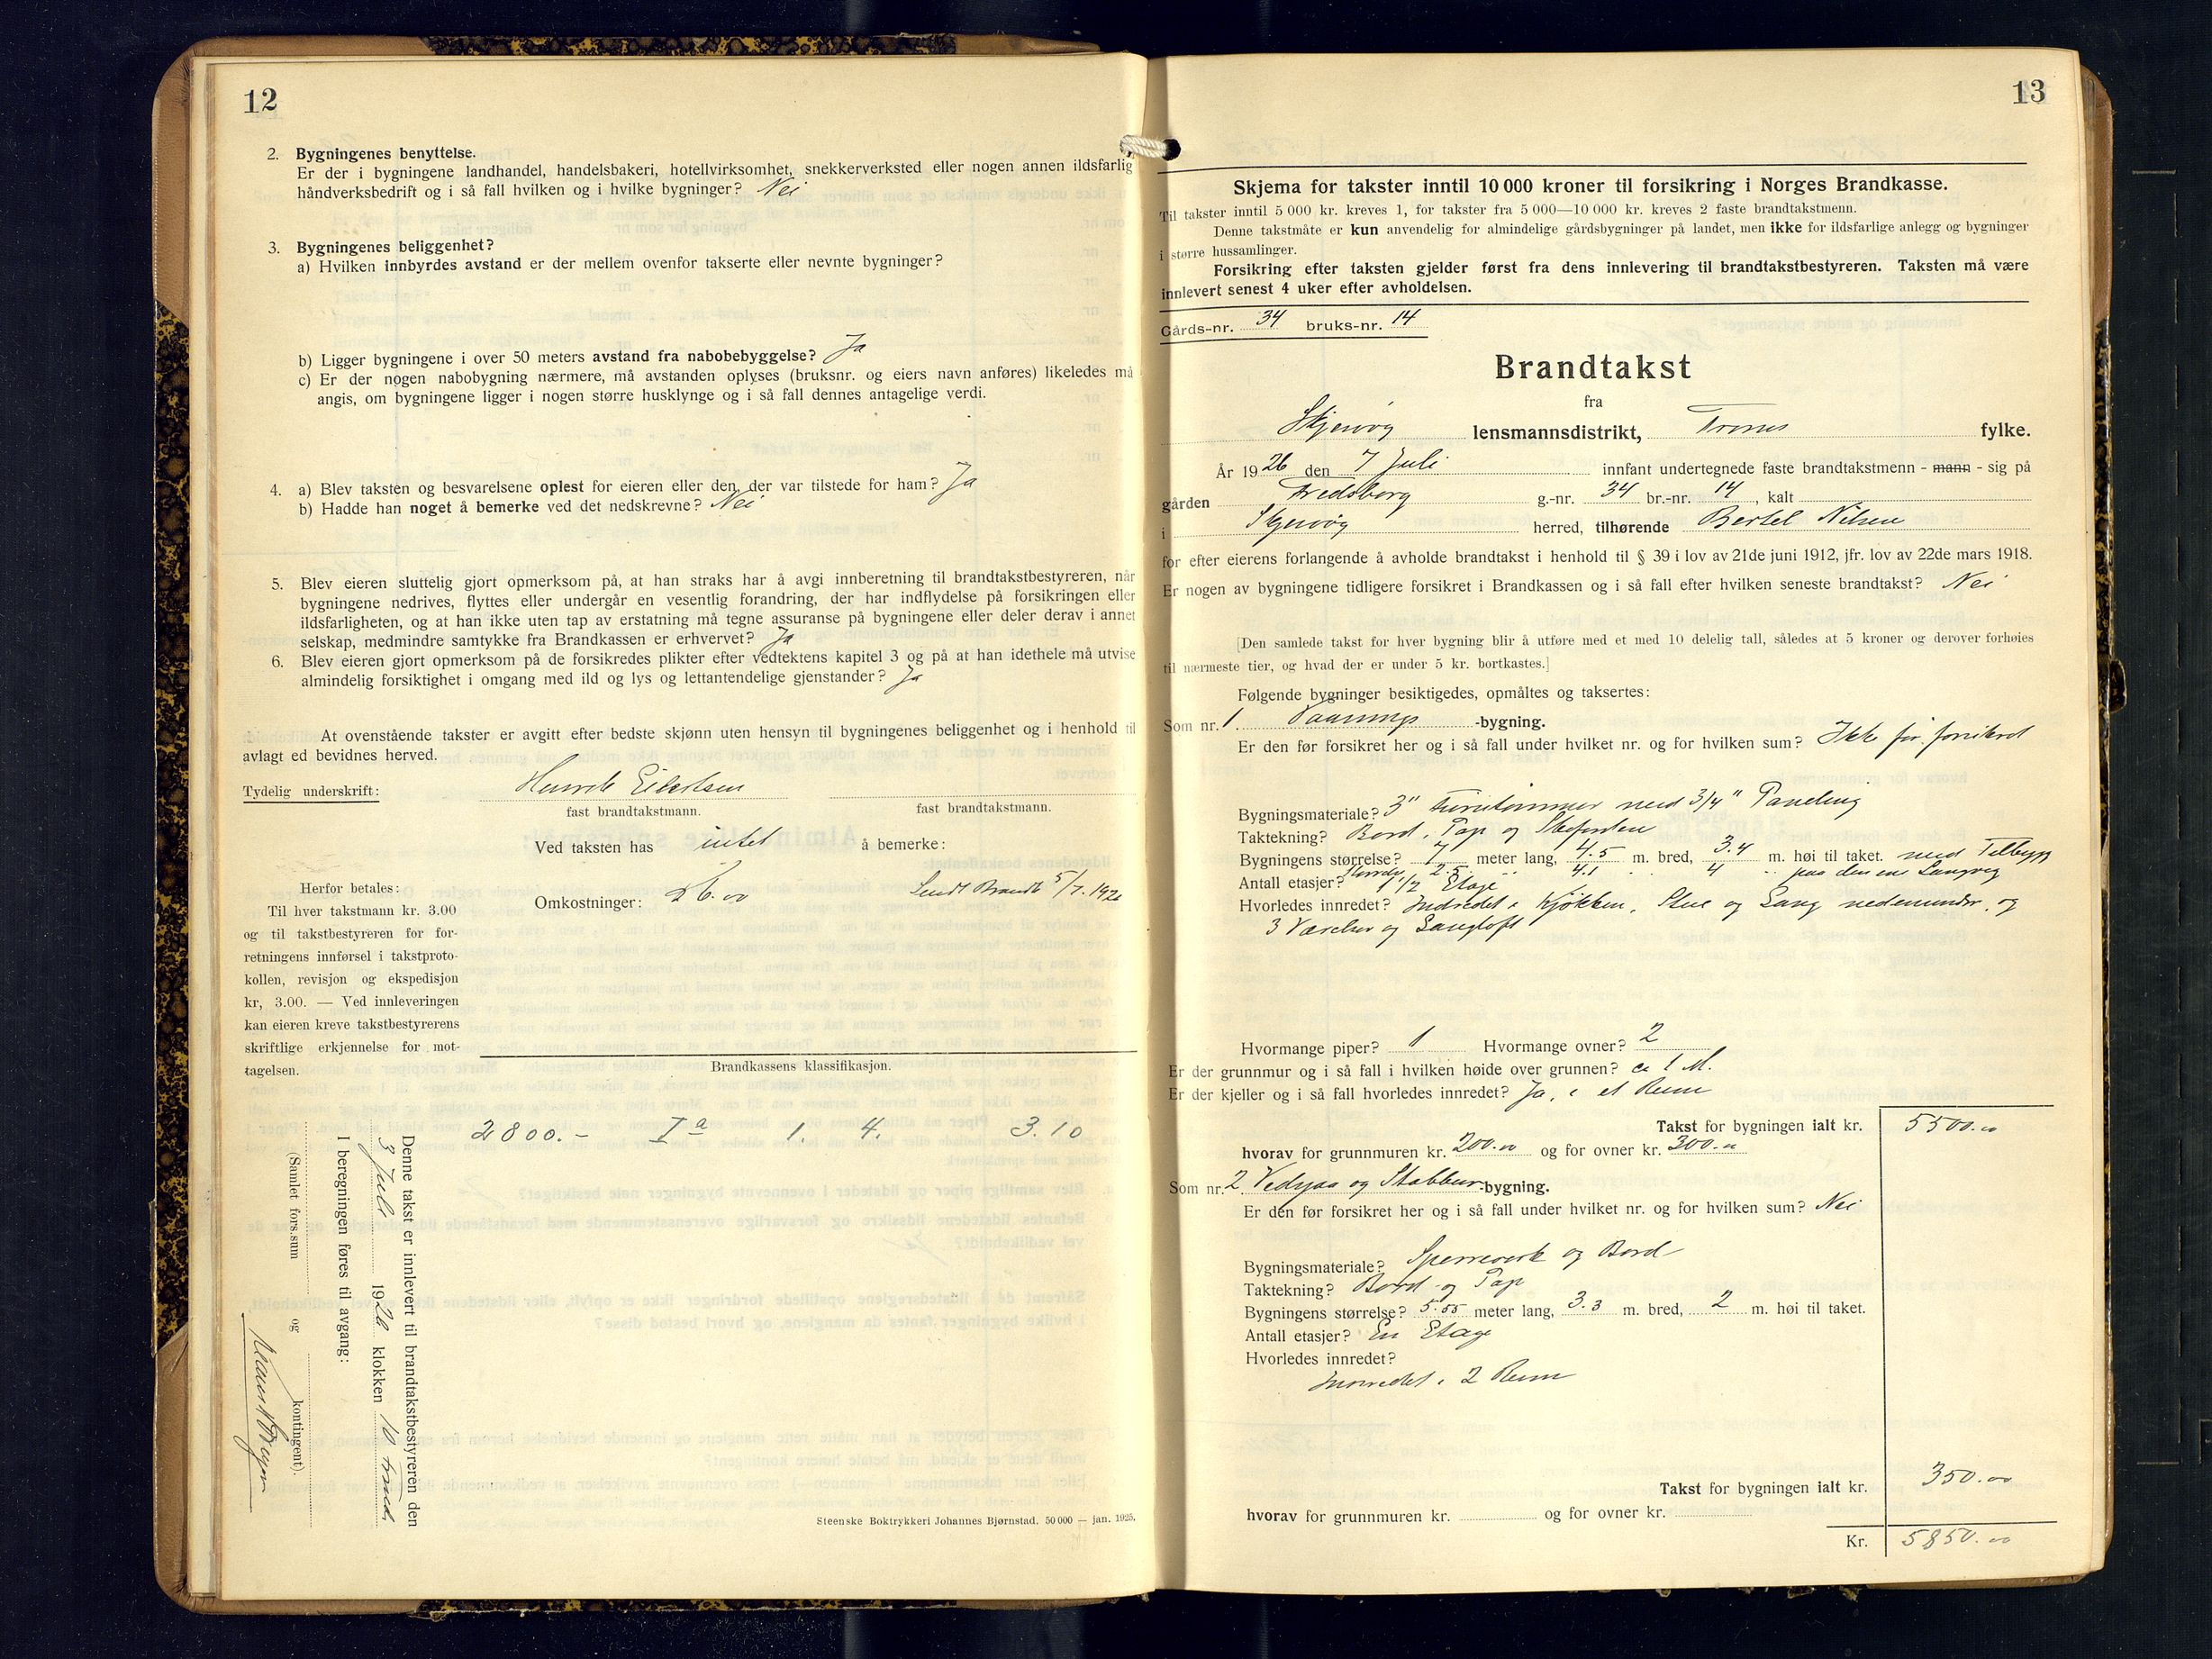 12
2. Bygningenes benyttelse.
Er der i bygningene landhandel, handelsbakeri, hotellvirksomhet, snekkerverksted eller nogen annen ildsfarlig
håndverksbedrift og i så fall hvilken og i hvilke bygninger? Nei
3. Bygningenes beliggenhet?
a) Hvilken innbyrdes avstand er der mellem ovenfor takserte eller nevnte bygninger?
b) Ligger bygningene i over 50 meters avstand fra nabobebyggelse? Ja
c) Er der nogen nabobygning nærmere, må avstanden oplyses (bruksnr. og eiers navn anføres) likeledes må
angis, om bygningene ligger i nogen større husklynge og i så fall dennes antagelige verdi.
4. a) Blev taksten og besvarelsene oplest for eieren eller den, der var tilstede for ham? Ja
b) Hadde han noget å bemerke ved det nedskrevne? Nei
5. Blev eieren sluttelig gjort opmerksom på, at han straks har å avgi innberetning til brandtakstbestyreren, når
bygningene nedrives, flyttes eller undergår en vesentlig forandring, der har indflydelse på forsikringen eller
ildsfarligheten, og at han ikke uten tap av erstatning må tegne assuranse på bygningene eller deler derav i annet
selskap, medmindre samtykke fra Brandkassen er erhvervet? Ja
6. Blev eieren gjort opmerksom på de forsikredes plikter efter vedtektens kapitel 3 og på at han idethele må utvise
almindelig forsiktighet i omgang med ild og lys og lettantendelige gjenstander? Ja
At ovenstående takster er avgitt efter bedste skjønn uten hensyn til bygningenes beliggenhet og i henhold til
avlagt ed bevidnes herved.
Tydelig underskrift: Henrik
fast brandtakstmann. fast brandtakstmann.
Ved taksten has intet å bemerke:
Omkostninger: 26.00 Sendt Brandk 5/7.1926
Herfor betales:
Til hver takstmann kr. 3.00
og til takstbestyreren for for-
retningens innførsel i takstproto-
kollen, revisjon og ekspedisjon
kr, 3.00. — Ved innleveringen
kan eieren kreve takstbestyrerens
skriftlige erkjennelse for mot-
tagelsen.
Brandkassens klassifikasjon.
2800.- I a 1. 4. 3.10
Denne takst er innlevert til brandtakstbestyreren den
3 Juli 1926 klokken 10 formd.
I beregningen føres til avgang:
(Samlet fors.sum og kontingent).
Steenske Boktrykkeri Johannes Bjørnstad. 50 000 — jan. 1925.
13
Skjema for takster inntil 10 000 kroner til forsikring i Norges Brandkasse.
Til takster inntil 5 000 kr. kreves 1, for takster fra 5 000—10 000 kr. kreves 2 faste brandtakstmenn.
Denne takstmåte er kun anvendelig for almindelige gårdsbygninger på landet, men ikke for ildsfarlige anlegg og bygninger
i større hussamlinger.
Forsikring efter taksten gjelder først fra dens innlevering til brandtakstbestyreren. Taksten må være
innlevert senest 4 uker efter avholdelsen.
Gårds-nr. 34 bruks-nr. 14
Brandtakst
fra
Skjervøy lensmannsdistrikt, Troms fylke.
År 1926 den 7 Juli innfant undertegnede faste brandtakstmenn - mann - sig på
gården Fredsborg g.-nr. 34 br.-nr. 14, kalt
i Skjervøy herred, tilhørende Bertel Nilsen
for efter eierens forlangende å avholde brandtakst i henhold til § 39 i lov av 21de juni 1912, jfr. lov av 22de mars 1918.
Er nogen av bygningene tidligere forsikret i Brandkassen og i så fall efter hvilken seneste brandtakst? Nei
[Den samlede takst for hver bygning blir å utføre med et med 10 delelig tall, således at 5 kroner og derover forhøies
til nærmeste tier, og hvad der er under 5 kr. bortkastes.]
Følgende bygninger besiktigedes, opmåltes og taksertes:
Som nr. 1. Vaanings-bygning.
Er den før forsikret her og i så fall under hvilket nr. og for hvilken sum? Ikke før forsikret
Bygningsmateriale? 3" Furutømmer med 3/4" Paneling
Taktekning? Bord, Pap og
Bygningens størrelse? 7 meter lang, 4.5 m. bred, 3.4 m. høi til taket. med Tilbygg
Størrelse 2.5 " 4.1 " 4 " paa den ene Langveg
Antall etasjer? 1 1/2 Etage
Hvorledes innredet? Indredet i Kjøkken, Stue og Gang nedenunder, og
3 Værelser og Gangloft
Hvormange piper? 1 Hvormange ovner? 2
Er der grunnmur og i så fall i hvilken høide over grunnen? ca 1 M.
Er der kjeller og i så fall hvorledes innredet? Ja, i et Rum
Takst for bygningen ialt kr. 5500.00
hvorav for grunnmuren kr. 200.00 og for ovner kr. 300.00
Som nr. 2. Vedsjaa og Stabburs-bygning.
Er den før forsikret her og i så fall under hvilket nr. og for hvilken sum? Nei
Bygningsmateriale? Sperreverk og Bord
Taktekning? Bord og Pap
Bygningens størrelse? 5.55 meter lang, 3.3 m. bred, 2 m. høi til taket.
Antall etasjer? En Etage
Hvorledes innredet?
Innredet i 2 Rum
Takst for bygningen ialt kr. 350.00
hvorav for grunnmuren kr. og for ovner kr.
Kr. 5850.00